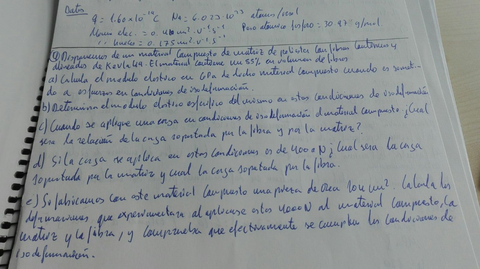 Datos
q = 1.60×10⁻¹⁹ C Na = 6.023×10²³ atomos/mol
μ elec. = 0.14 m² v⁻¹ s⁻¹ Peso atomico fosforo = 30.97 g/mol
0.175 m² v⁻¹ s⁻¹
Disponemos de un material compuesto de matriz de poliester con fibras continuas y
alineadas de Kevlar 49. El material contiene un 55% en volumen de fibras
a) Calcula el modulo elastico en GPa de dicho material compuesto cuando es someti-
do a esfuerzos en condiciones de isodeformación.
b) Determina el modulo elastico especifico del mismo en estas condiciones de isodeformación
c) Cuando se aplique una carga en condiciones de isodeformación al material compuesto ¿Cual
sera la relación de la carga soportada por la fibra y por la matriz?
d) Si la carga se aplica en estas condiciones es de 4000 N ¿Cual sera la carga
soportada por la matriz y cual la carga soportada por la fibra.
e) Si fabricamos con este material compuesto una pieza de area cm². Calcula las
deformaciones que experimentara al aplicarse estos 4000N al material compuesto, la
matriz y la fibra, y comprueba que efectivamente se cumplen las condiciones de
isodeformación.